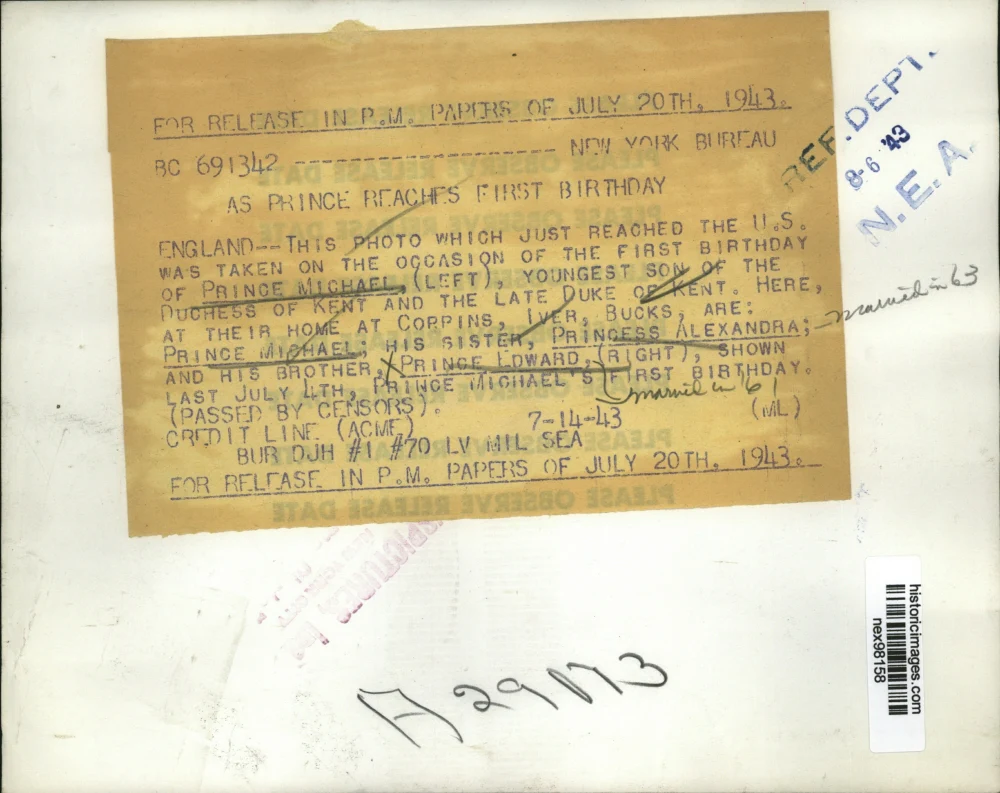 FOR RELEASE IN P.M. PAPERS OF JULY 20TH, 1943.
BC 691342 -------------------- NEW YORK BUREAU
AS PRINCE REACHES FIRST BIRTHDAY
ENGLAND--THIS PHOTO WHICH JUST REACHED THE U.S.
WAS TAKEN ON THE OCCASION OF THE FIRST BIRTHDAY
OF PRINCE MICHAEL, (LEFT), YOUNGEST SON OF THE
DUCHESS OF KENT AND THE LATE DUKE OF KENT. HERE,
AT THEIR HOME AT COPPINS, IVER, BUCKS, ARE:
PRINCE MICHAEL, HIS SISTER, PRINCESS ALEXANDRA; - married in 63
AND HIS BROTHER, PRINCE EDWARD, (RIGHT), SHOWN
LAST JULY 4TH, PRINCE MICHAEL'S FIRST BIRTHDAY.
married in '61
(PASSED BY CENSORS).
CREDIT LINE (ACME) 7-14-43 (ML)
BUR DJH #1 #70 LV MIL SEA
FOR RELEASE IN P.M. PAPERS OF JULY 20TH, 1943.
PLEASE OBSERVE RELEASE DATE
PLEASE OBSERVE RELEASE DATE
PLEASE OBSERVE RELEASE DATE
PLEASE OBSERVE RELEASE DATE
REF. DEPT.
8-6 '43
N.E.A.
historicimages.com
nex98158